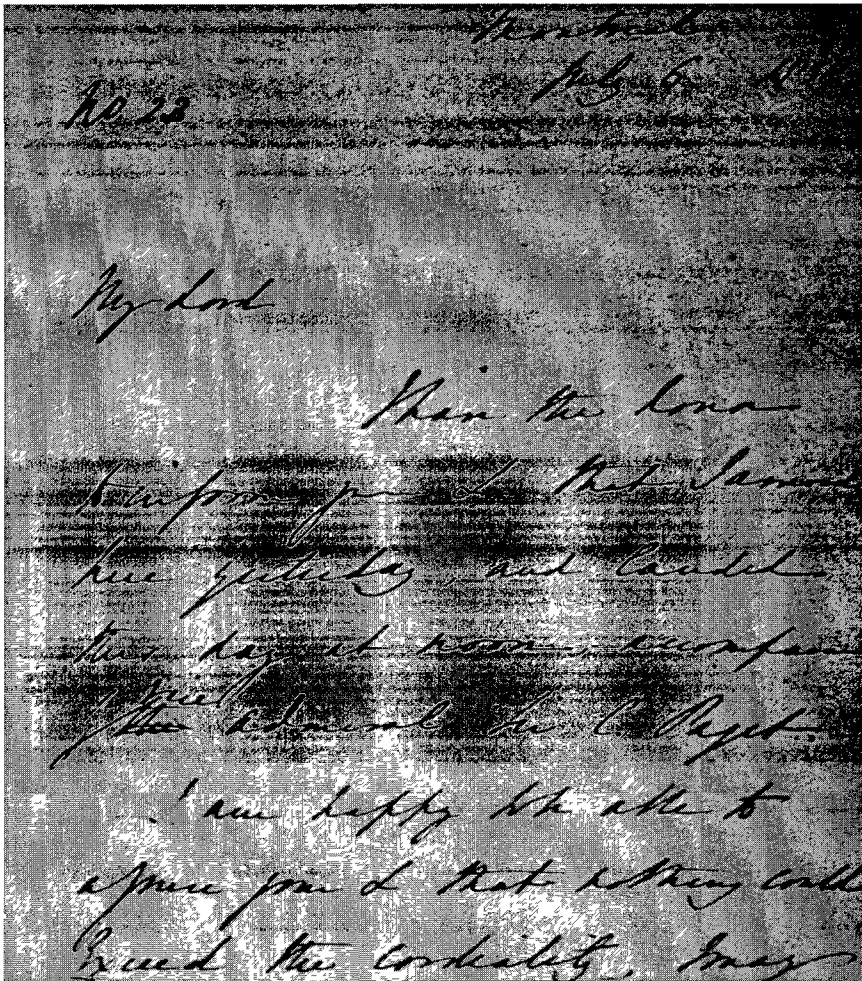 Montreal
July 6
No. 23
My Lord
I have the hono
to inform you L that I arrived
here yesterday, and landed
this day at noon, accompan
Vice
Admiral Sir C Paget.
I am happy to be able to
assure your L that nothing could
Exceed the cordiality, I may